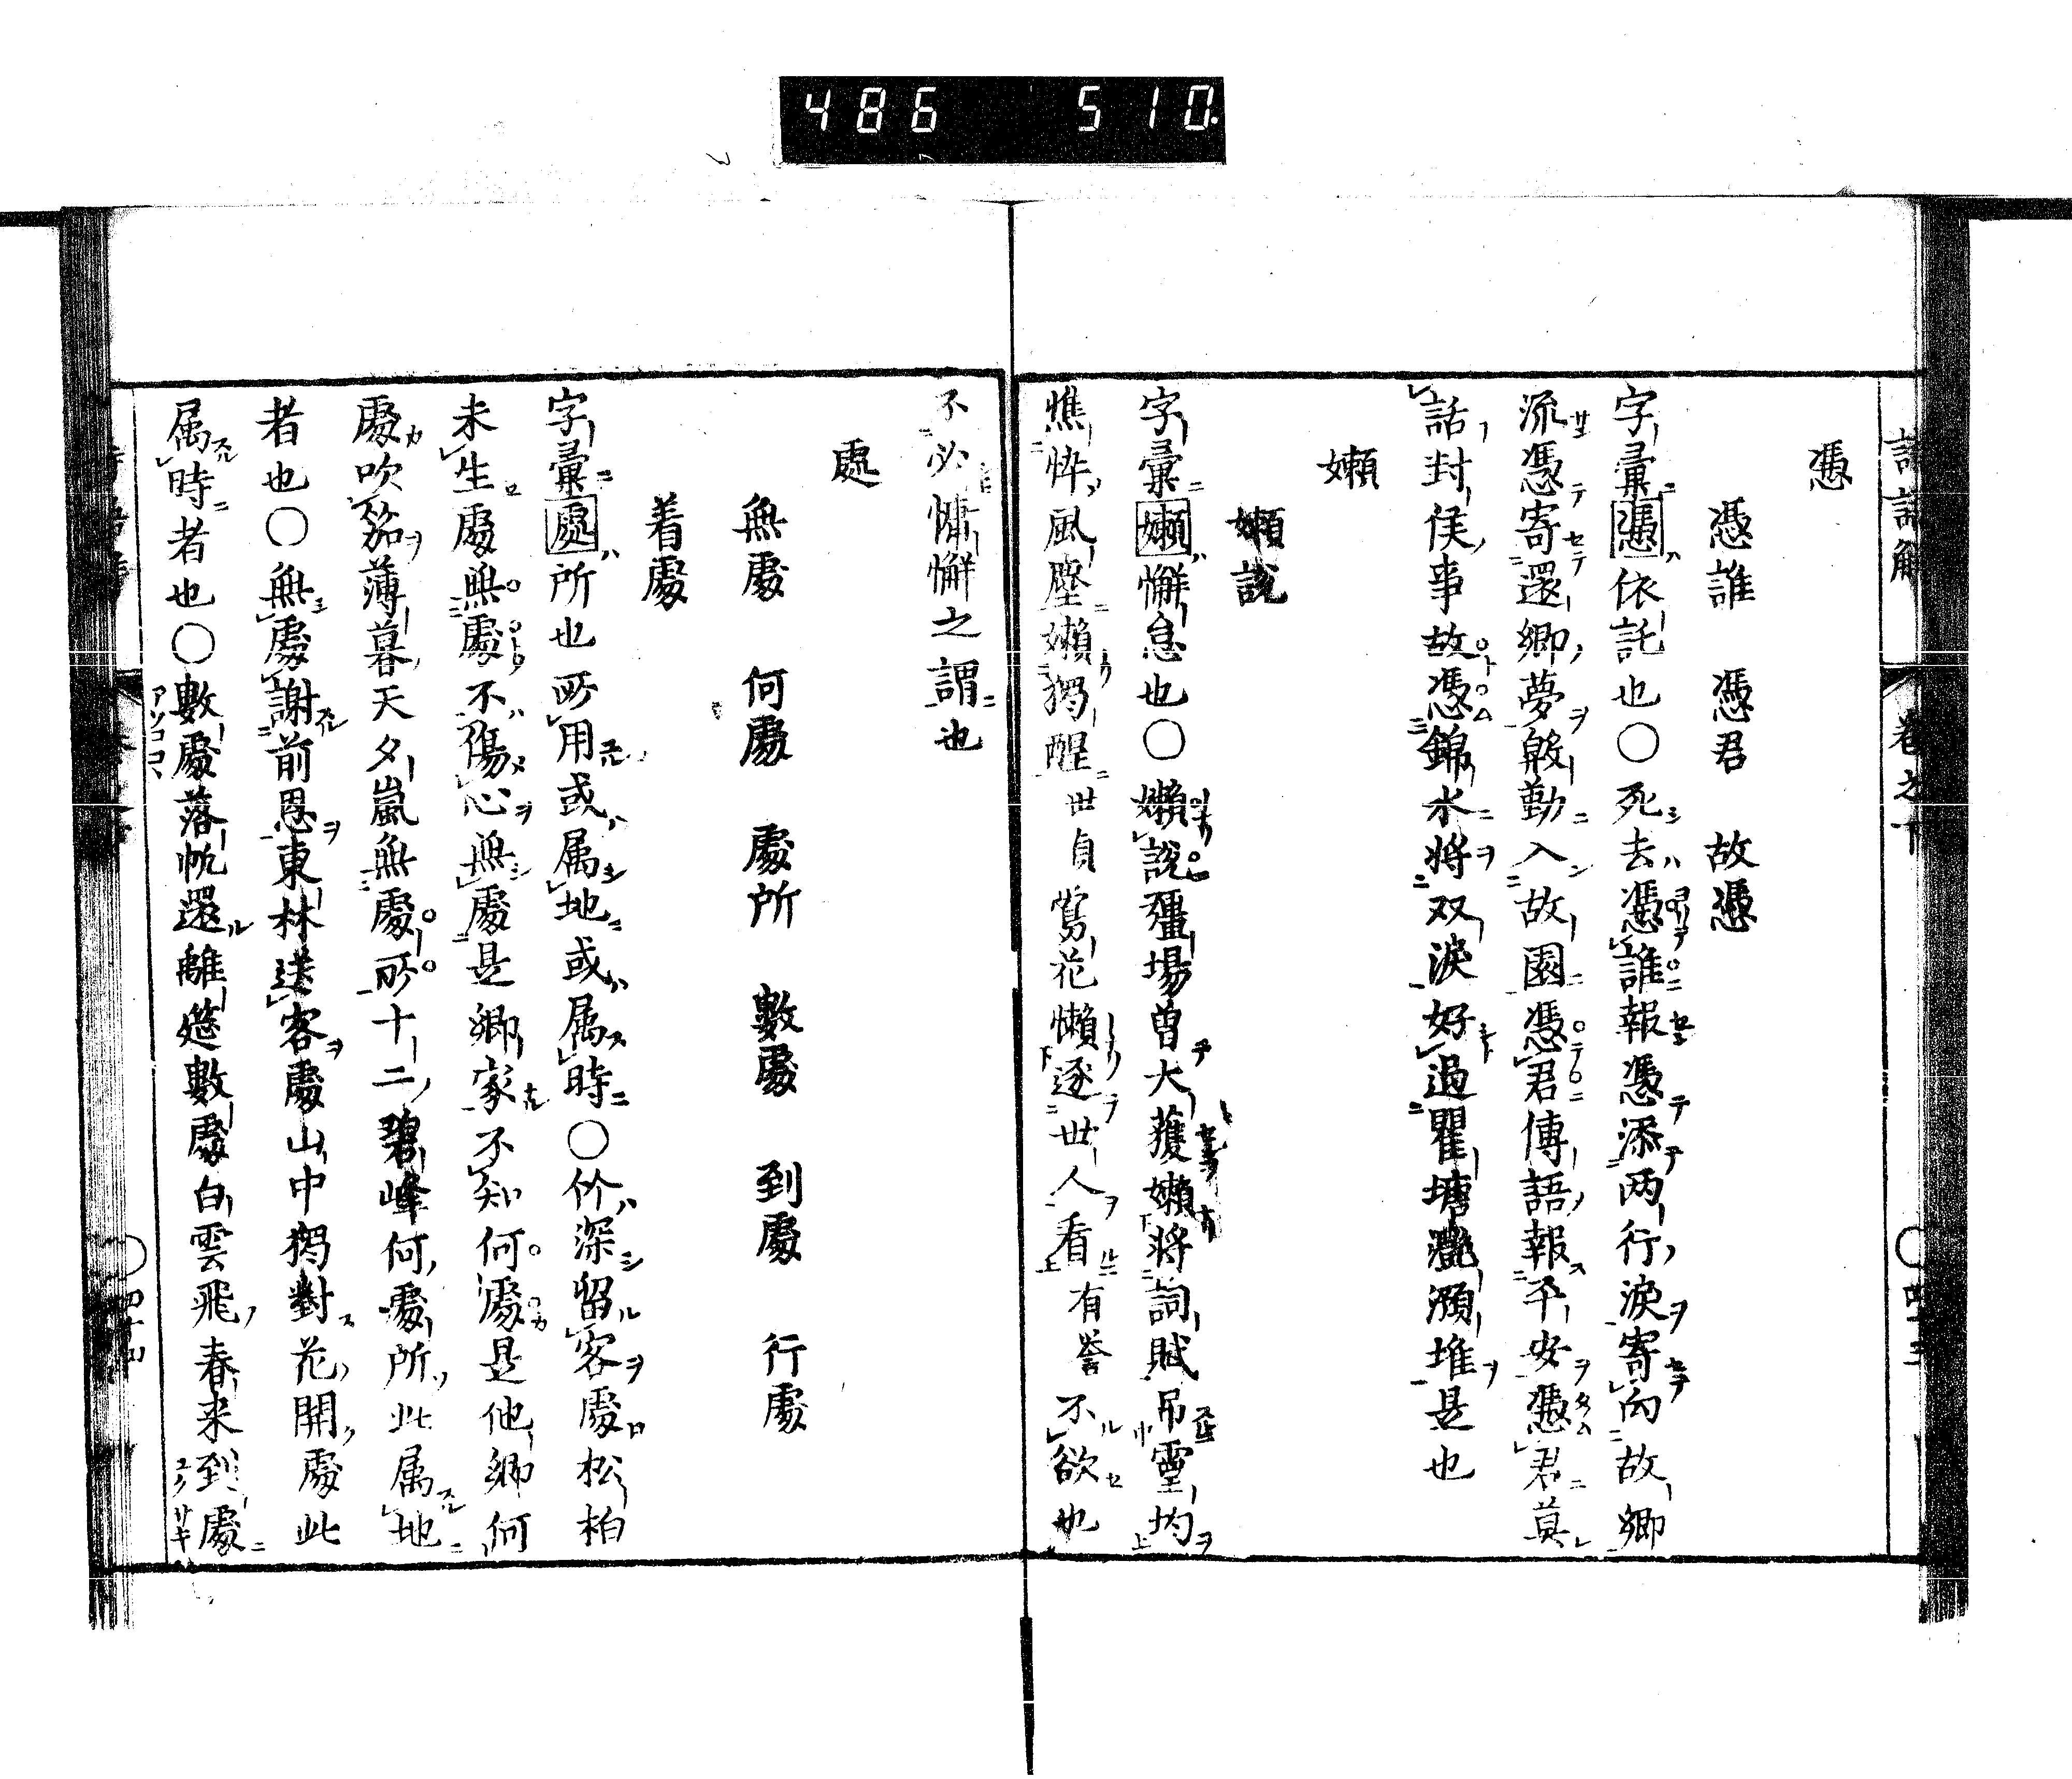 486 510.
憑
憑誰 憑君 故憑
字彙憑依託也○死去憑誰報憑添两行淚寄向故郷
流憑寄還郷夢慇勤入故園憑君傳語報平安憑君莫
話封侯事故憑錦水将双淚好過瞿塘灔澦堆是也
嬾
嬾說
字彙嬾懈怠也○嬾說疆場曽大獲嬾将詞賦吊靈均
憔悴風塵嬾獨醒世貞鶯花懶逐世人看有誉不欲也
不必慵懈之謂也
處
無處 何處 處所 數處 到處 行處
着處
字彙處所也所用或属地或属時○竹深留客處松柏
未生處無處不傷心無處是郷家不知何處是他郷何
處吹笳薄暮天夕嵐無處所十二碧峰何處所此属地
者也○無處謝前恩東林送客處山中獨對花開處此
属時者也○數處落帆還離筵數處白雲飛春来到處
アソココヽ
卷之下
四十三
四十四